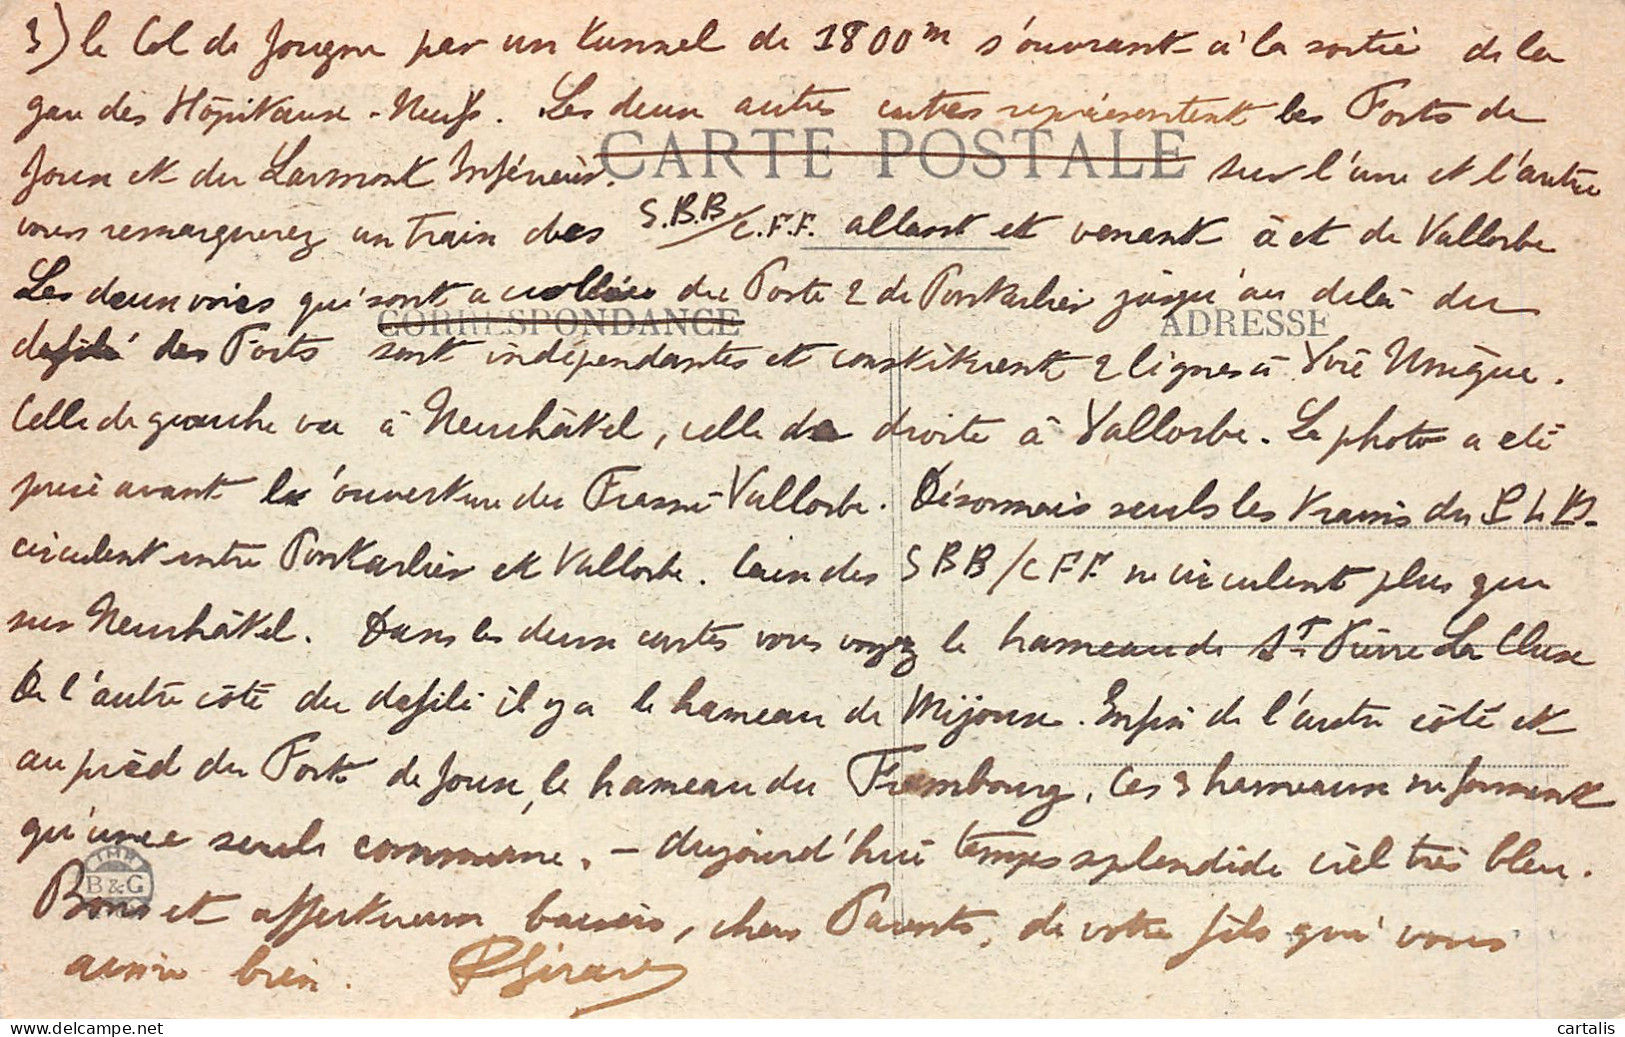 3) le Col de Jougne par un tunnel de 1800m s'ouvrant à la sortie de la
gare des Hôpitaux-Neufs. Les deux autres cartes représentent les Forts de
CARTE POSTALE
Joux et du Larmont Inférieur. sur l'une et l'autre
vous remarquerez un train des S.B.B/C.F.F. allant et venant à et de Vallorbe
Les deux voies qui sont accollées du Poste 2 de Pontarlier jusqu'au delà du
CORRESPONDANCE ADRESSE
défilé des Forts sont indépendantes et constituent 2 lignes à Voie Unique.
Celle de gauche va à Neuchâtel, celle de droite à Vallorbe. La photo a été
prise avant l'ouverture du Frasne-Vallorbe. Désormais seuls les trains du P L M
circulent entre Pontarlier et Vallorbe. Ceux des SBB/CFF ne circulent plus que
sur Neuchâtel. Dans les deux cartes vous voyez le hameau de St Pierre La Cluse
De l'autre côté du défilé il y a le hameau de Mijoux. Enfin de l'autre côté et
au pied du Fort de Joux, le hameau du Frambourg, Ces 3 hameaux ne forment
qu'une seule commune. - Aujourd'hui temps splendide ciel très bleu.
IMP.
B & G
Bons et affectueux baisers, chers Parents, de votre fils qui vous
aime bien. Girard
delcampe.net
cartalis